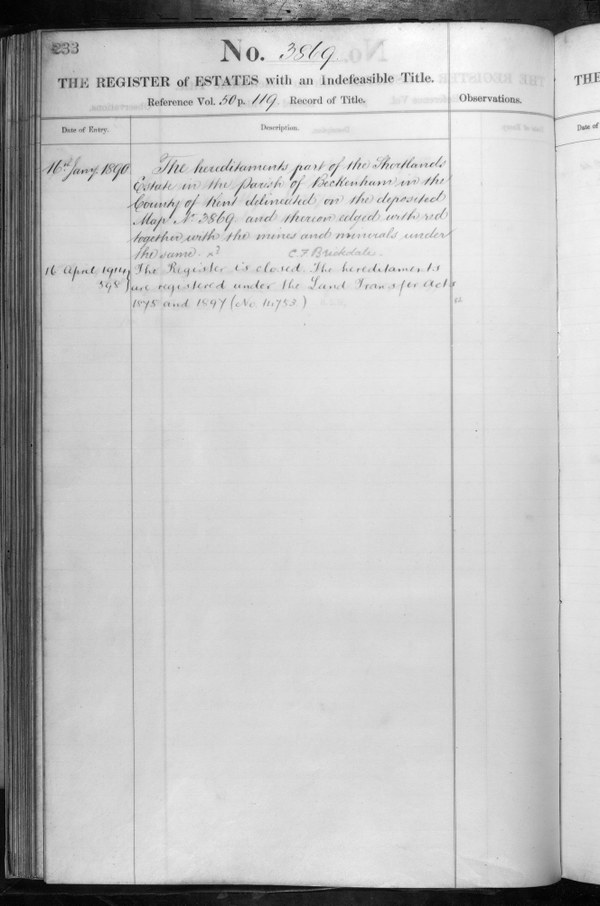 233
No. 3869
THE REGISTER of ESTATES with an Indefeasible Title.
Reference Vol. 50 p. 119 Record of Title.
Observations.
Date of Entry.
Description.
16th Jany 1890
The hereditaments part of the Shortlands
Estate in the parish of Beckenham in the
County of Kent delineated on the deposited
Map No 3869 and thereon edged with red
together with the mines and minerals under
the same.
C F Brickdale.
16 April
398
The Register is closed. The hereditaments
are registered under the Land Transfer Acts
1875 and 1897 (No 11752)
THE
Date of